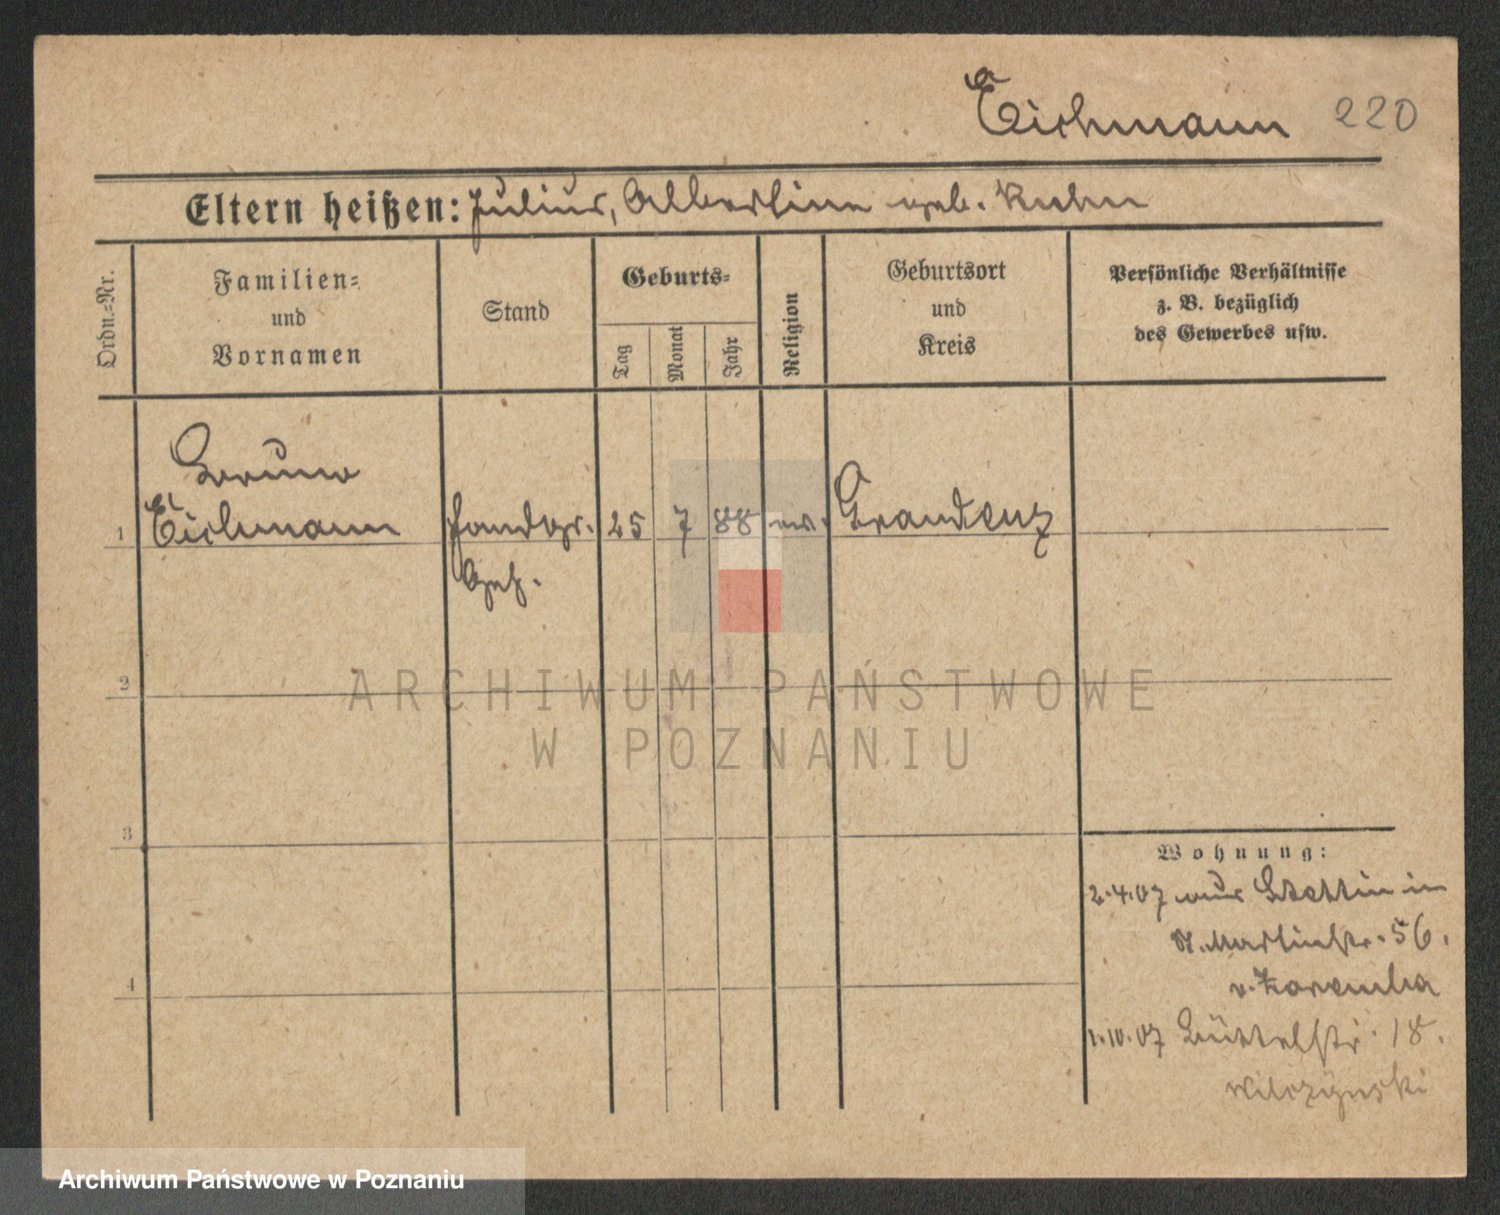 Eichmann 220
Eltern heißen: Julius, Albertine geb. Kuhn
Ordn.=Nr.
Familien=
und
Vornamen
Stand
Geburts=
Tag
Monat
Jahr
Religion
Geburtsort
und
Kreis
Persönliche Verhältnisse
z. B. bezüglich
des Gewerbes usw.
Bruno
1 Eichmann 25 7 88 ev. Graudenz
Geh.
2
ARCHIWUM PAŃSTWOWE
W POZNANIU
3
Wohnung:
2.4.07 aus Stettin in
St. Martinstr. 56.
v. Zaremba
1.10.07 Büttelstr. 18.
Wilczynski
4
Archiwum Państwowe w Poznaniu